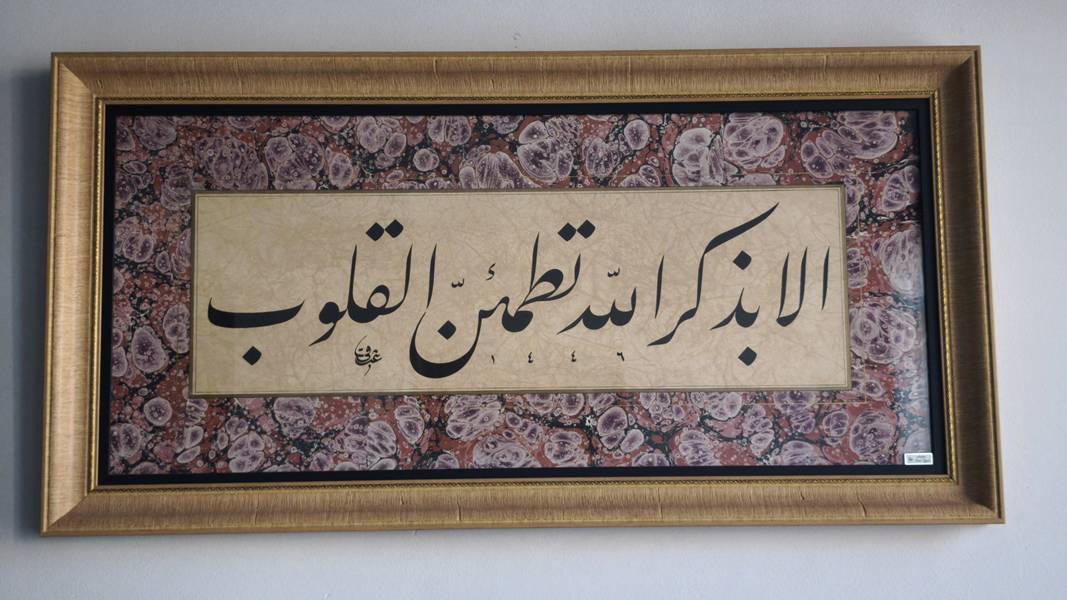 الا بذكر الله تطمئنّ القلوب
١ ٤ ٤ ٦